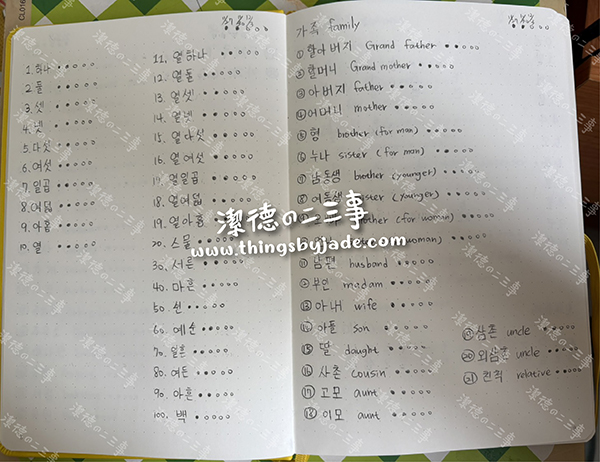 1. 하나
2. 둘
3. 셋
4. 넷
5. 다섯
6. 여섯
7. 일곱
8. 여덟
9. 아홉
10. 열
11. 열하나
12. 열둘
13. 열셋
14. 열넷
15. 열다섯
16. 열여섯
17. 열일곱
18. 열여덟
19. 열아홉
20. 스물
30. 서른
40. 마흔
50.
60. 예순
70. 일흔
80. 여든
90. 아흔
100. 백
가족 family
① 할아버지 Grand father
② 할머니 Grand mother
③ 아버지 father
④ 어머니 mother
⑤ 형 brother (for man)
⑥ 누나 sister (for man)
⑦ 남동생 brother (younger)
⑧ 여동생 sister (younger)
brother (for woman)
woman)
⑪ 남편 husband
⑫ 부인 madam
⑬ 아내 wife
⑭ 아들 son
⑮ 딸 daught
⑯ 사촌 cousin
⑰ 고모 aunt
⑱ 이모 aunt
⑲ 삼촌 uncle
⑳ 외삼촌 uncle
㉑ 친척 relative
潔德の二三事
www.thingsbyjade.com